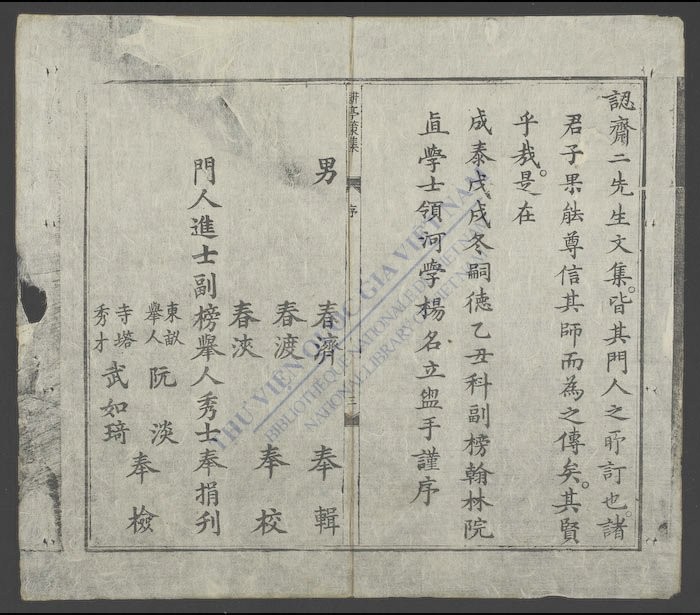 認齋二先生文集。皆其門人之所訂也。諸
君子果能尊信其師而為之傳矣。其賢
乎哉。是在
成泰戊戌冬嗣德乙丑科副榜翰林院
直學士領河學楊名立盥手謹序
亭策集
序
三
男
春濟 奉輯
春渡
春浹 奉校
門人進士副榜舉人秀士奉捐刋
東畝舉人 阮淡
寺塔秀才 武如琦 奉檢
THƯ VIỆN QUỐC GIA VIỆT NAM
BIBLIOTHÈQUE NATIONALE DU VIETNAM
NATIONAL LIBRARY OF VIETNAM